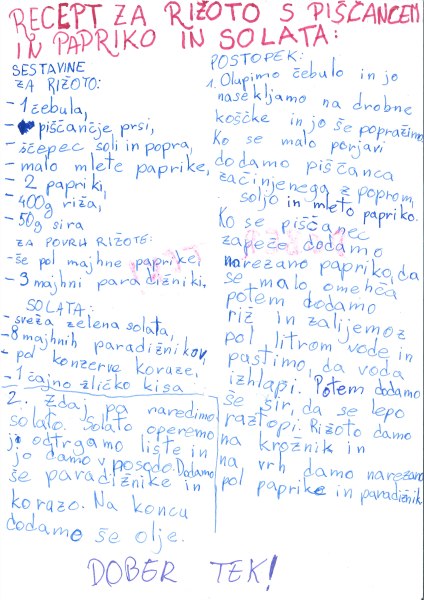 RECEPT ZA RIŽOTO S PIŠČANCEM
IN PAPRIKO IN SOLATA:
SESTAVINE
ZA RIŽOTO:
- 1 čebula,
- piščančje prsi,
- ščepec soli in popra,
- malo mlete paprike,
- 2 papriki,
- 400g riža,
- 50g sira
ZA POVRH RIŽOTE:
- še pol majhne paprike,
- 3 majhni paradižniki.
SOLATA:
- sveža zelena solata,
- 8 majhnih paradižnikov,
- pol konzerve koruze,
- 1 čajno žličko kisa
POSTOPEK:
1. Olupimo čebulo in jo
nasekljamo na drobne
koščke in jo še popražimo
Ko se malo porjavi
dodamo piščanca
začinjenega z poprom,
soljo in mleto papriko.
Ko se piščanec
zapeče dodamo
narezano papriko, da
se malo omehča
potem dodamo
riž in zalijemo z
pol litrom vode in
pustimo, da voda
izhlapi. Potem dodamo
še sir, da se lepo
raztopi. Rižoto damo
na krožnik in
na vrh damo narezano
pol paprike in paradižnik
2. Zdaj pa naredimo
solato. Solato operemo
jo odtrgamo liste in
jo damo v posodo. Dodamo
še paradižnike in
koruzo. Na koncu
dodamo še olje.
DOBER TEK!